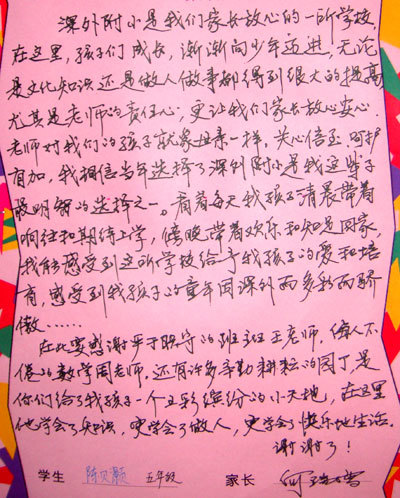 深外附小是我们家长放心的一所学校,
在这里,孩子们成长,渐渐向少年迈进,无论
是文化知识还是做人做事都得到很大的提高
尤其是老师的责任心,更让我们家长放心安心.
老师对我们的孩子就象母亲一样,关心倍至,呵护
有加,我相信当年选择了深外附小是我这辈子
最明智的选择之一。看着每天我孩子清晨带着
响往和期待上学,傍晚带着欢乐和知足回家,
我能感受到这所学校给予我孩子的爱和培
育,感受到我孩子的童年因深外而多彩而骄
傲……
在此要感谢严于职守的班主任王老师,诲人不
倦的数学周老师,还有许多辛勤耕耘的园丁,是
你们给了我孩子一个五彩缤纷的小天地,在这里
他学会了知识,更学会了做人,更学会了快乐地生活。
谢谢了!
学生 陈贝颢 五年级 家长 何